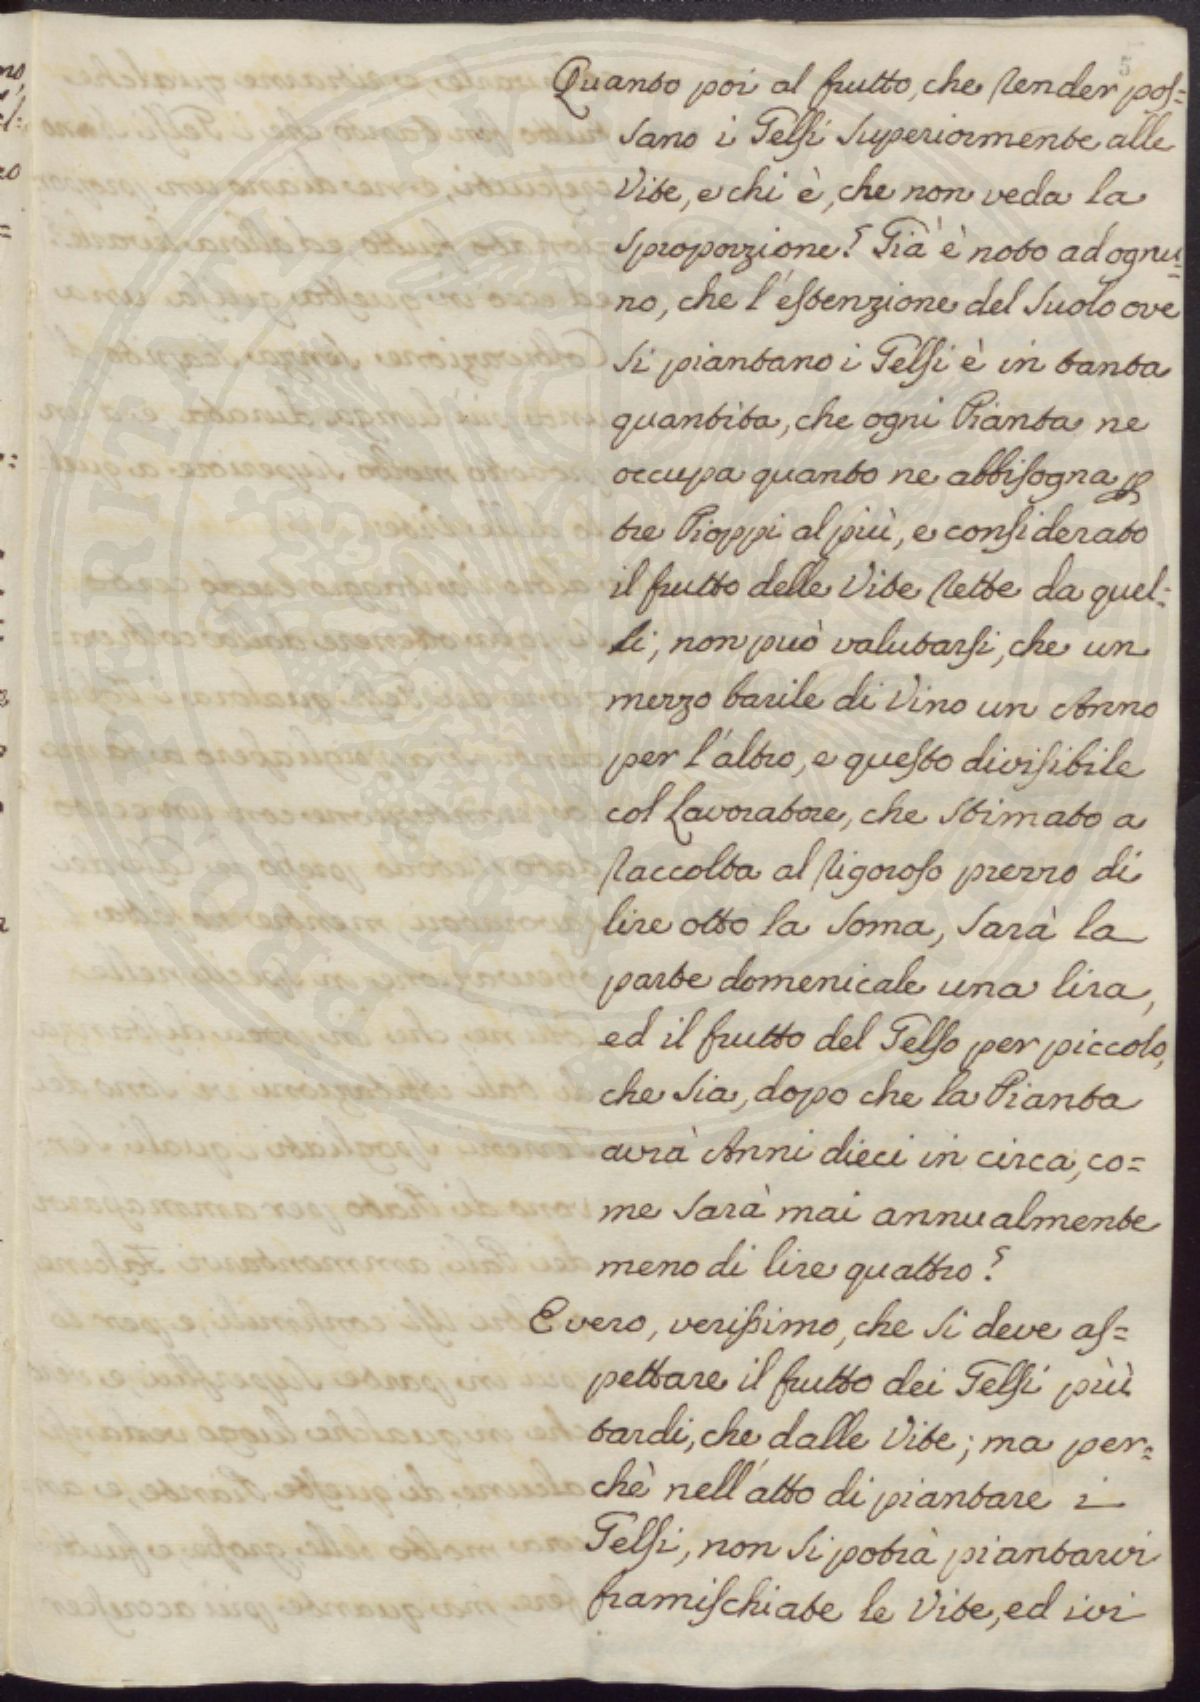 5
Quanto poi al frutto, che render pos=
sano i Gelsi superiormente alle
Vite, e chi è, che non veda la
sproporzione? Già è noto ad ognu=
no, che l'estenzione del suolo ove
si piantano i Gelsi è in tanta
quantita, che ogni Pianta ne
occupa quanto ne abbisogna p
tre Pioppi al più, e considerato
il frutto delle Vite rette da quel=
li, non può valutarsi, che un
mezzo barile di Vino un Anno
per l'altro, e questo divisibile
col Lavoratore, che stimato a
raccolta al rigoroso prezzo di
lire otto la soma, sarà la
parte domenicale una lira,
ed il frutto del Gelso per piccolo,
che sia, dopo che la Pianta
avrà Anni dieci in circa, co=
me sarà mai annualmente
meno di lire quattro?
E vero, verissimo, che si deve as=
pettare il frutto dei Gelsi più
tardi, che dalle Vite; ma per=
chè nell'atto di piantare i
Gelsi, non si potrà piantarvi
framischiate le Vite, ed ivi